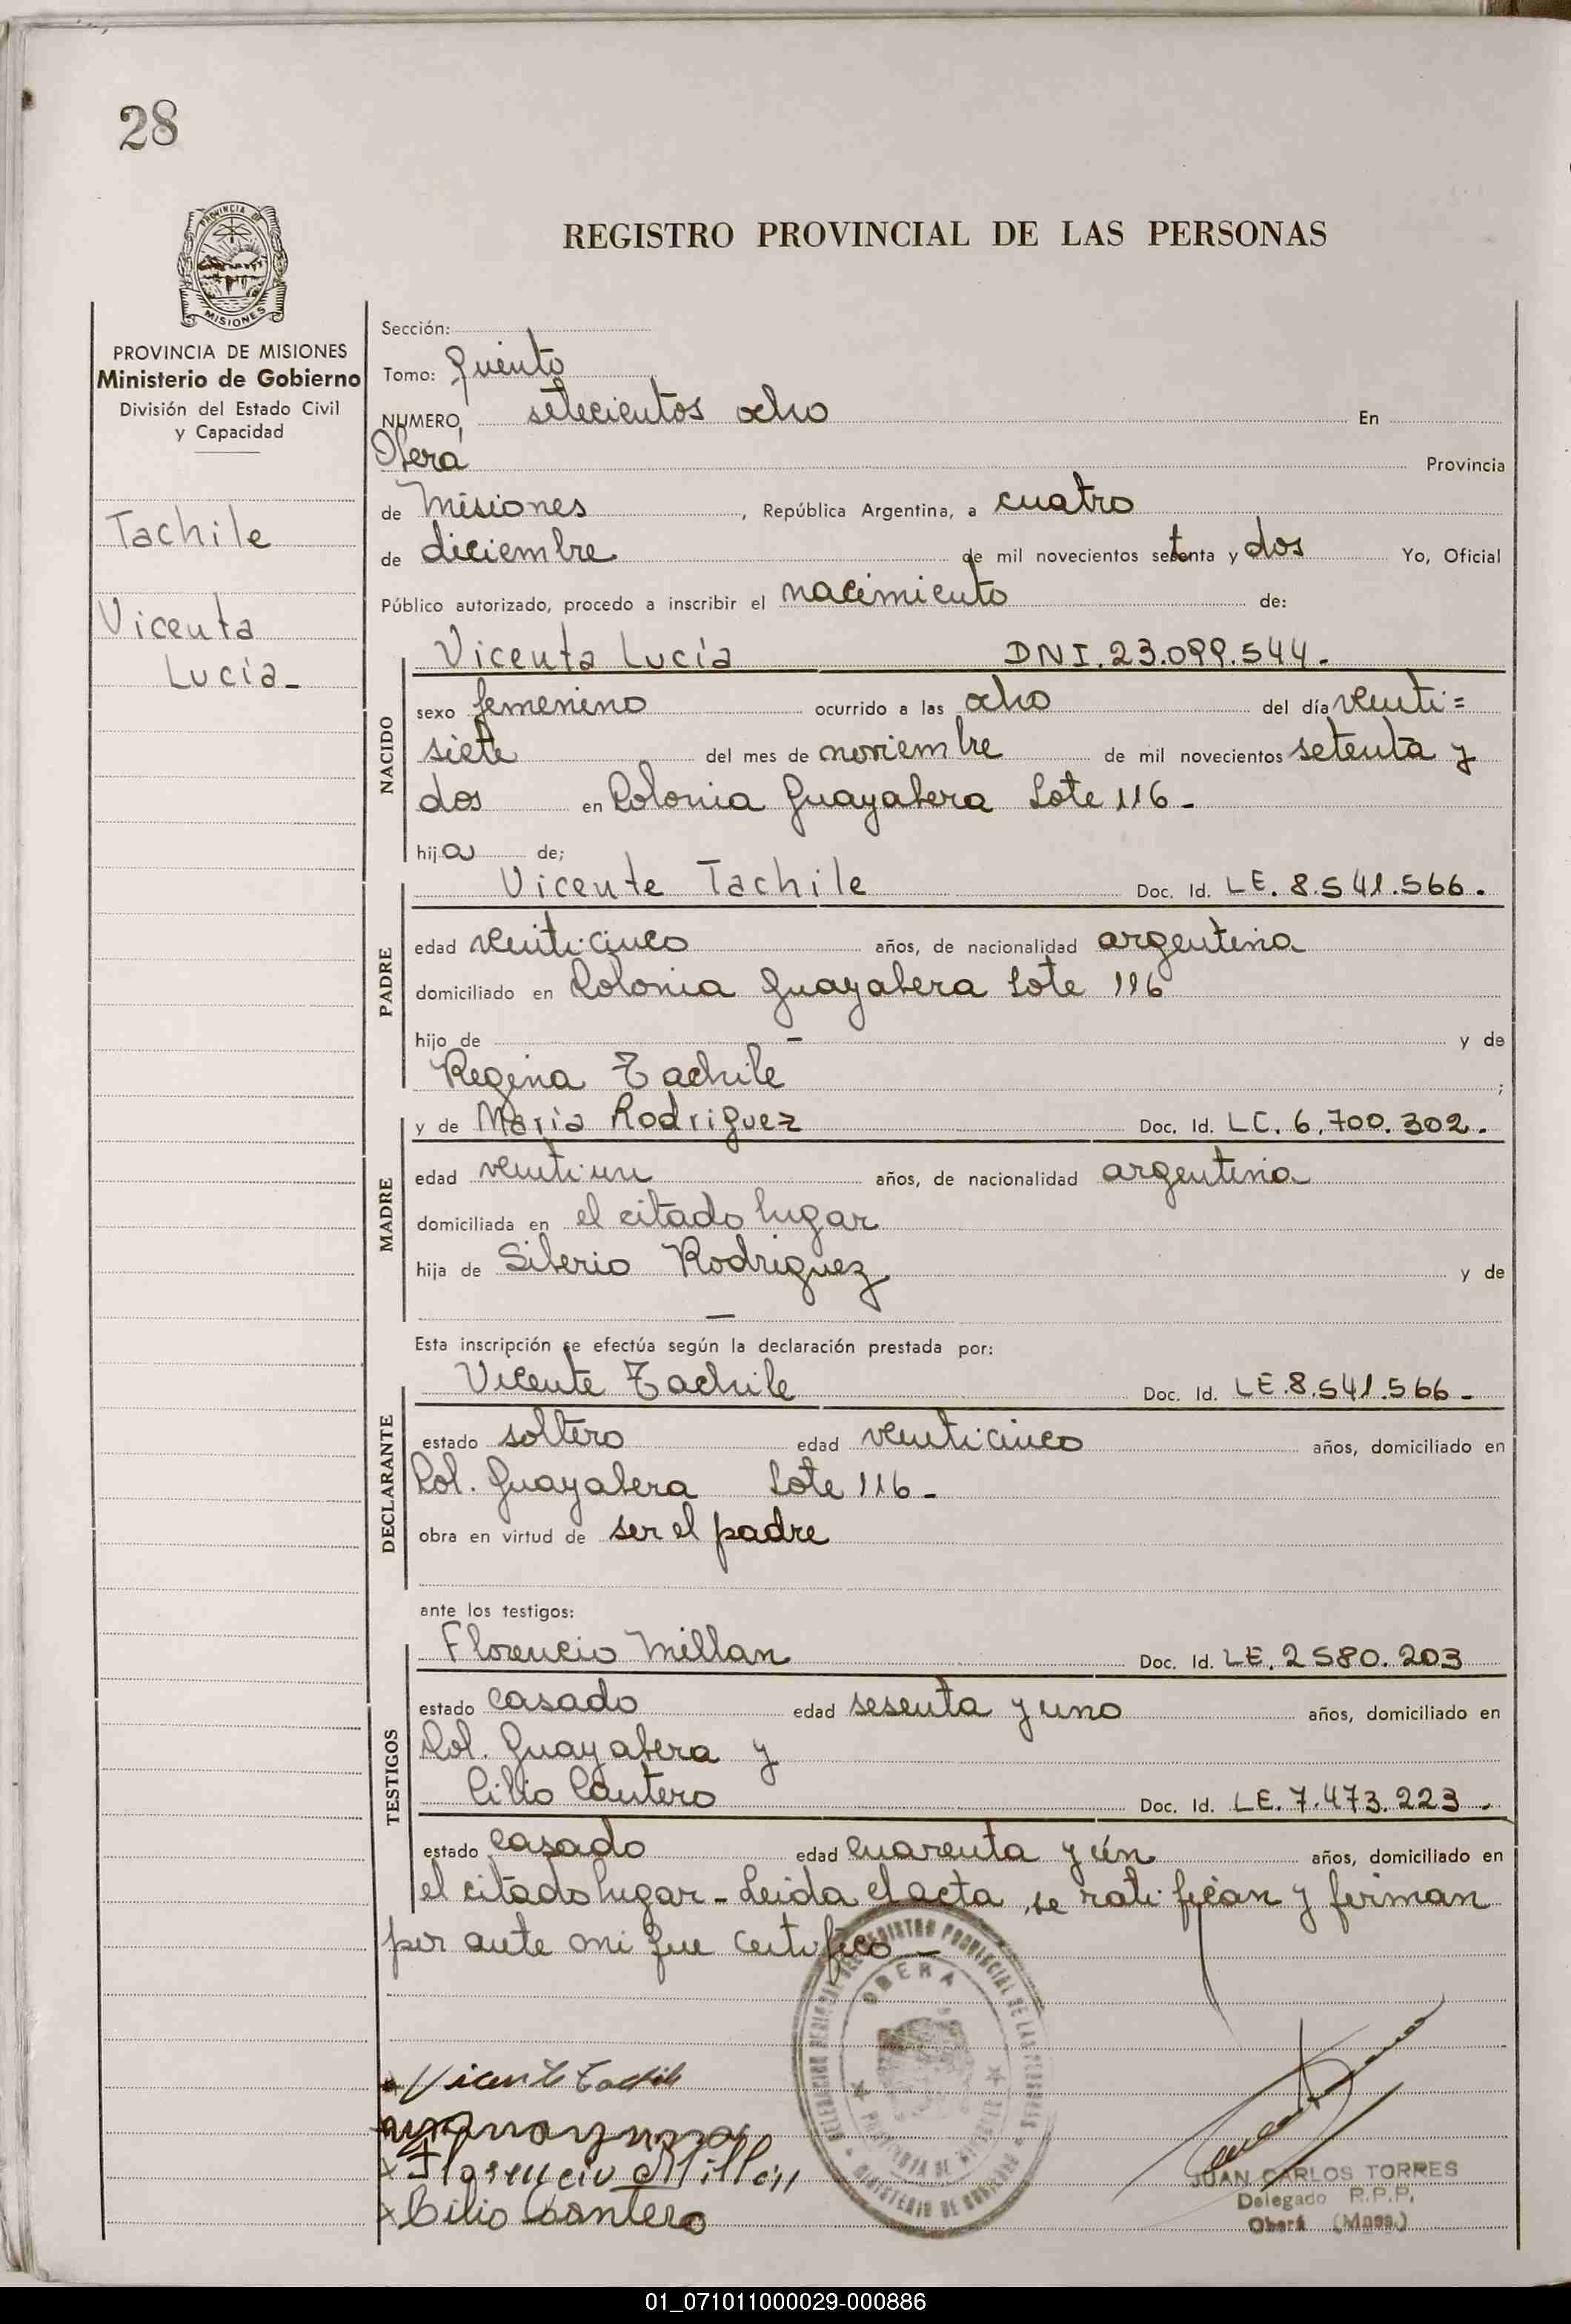 28
PROVINCIA DE
MISIONES
REGISTRO PROVINCIAL DE LAS PERSONAS
PROVINCIA DE MISIONES
Ministerio de Gobierno
División del Estado Civil
y Capacidad
Tachile
Vicenta
Lucía-
Sección:
Tomo: Quinto
NUMERO, setecientos ocho En
Oberá Provincia
de Misiones, República Argentina, a cuatro
de diciembre de mil novecientos setenta y dos Yo, Oficial
Público autorizado, procedo a inscribir el nacimiento de:
NACIDO
Vicenta Lucía DNI. 23.099.544-
sexo femenino ocurrido a las ocho del día venti=
siete del mes de noviembre de mil novecientos setenta y
dos en Colonia Guayabera Lote 116-
hija de;
PADRE
Vicente Tachile Doc. Id. LE. 8.541.566.
edad venticinco años, de nacionalidad argentina
domiciliado en Colonia Guayabera Lote 116
hijo de - y de
Regina Tachile ;
MADRE
y de María Rodriguez Doc. Id. LC. 6.700.302.
edad ventiun años, de nacionalidad argentina
domiciliada en el citado lugar
hija de Siberio Rodriguez y de
—
Esta inscripción se efectúa según la declaración prestada por:
DECLARANTE
Vicente Tachile Doc. Id. LE.8.541.566-
estado soltero edad venticinco años, domiciliado en
Col. Guayabera Lote 116-
obra en virtud de ser el padre
ante los testigos:
TESTIGOS
Florencio Millan Doc. Id. LE. 2580.203
estado casado edad sesenta y uno años, domiciliado en
Col. Guayabera y
Cilio Cantero Doc. Id. LE. 7.473.223-
estado casado edad cuarenta y ún años, domiciliado en
el citado lugar- Leida el acta, se ratifican y firman
por ante mi que certifico-
OBERA
Vicente Tachile
x Florencio Millán
x Cilio Cantero
JUAN CARLOS TORRES
Delegado R.P.P.
Oberá (Mnes.)
01_071011000029-000886